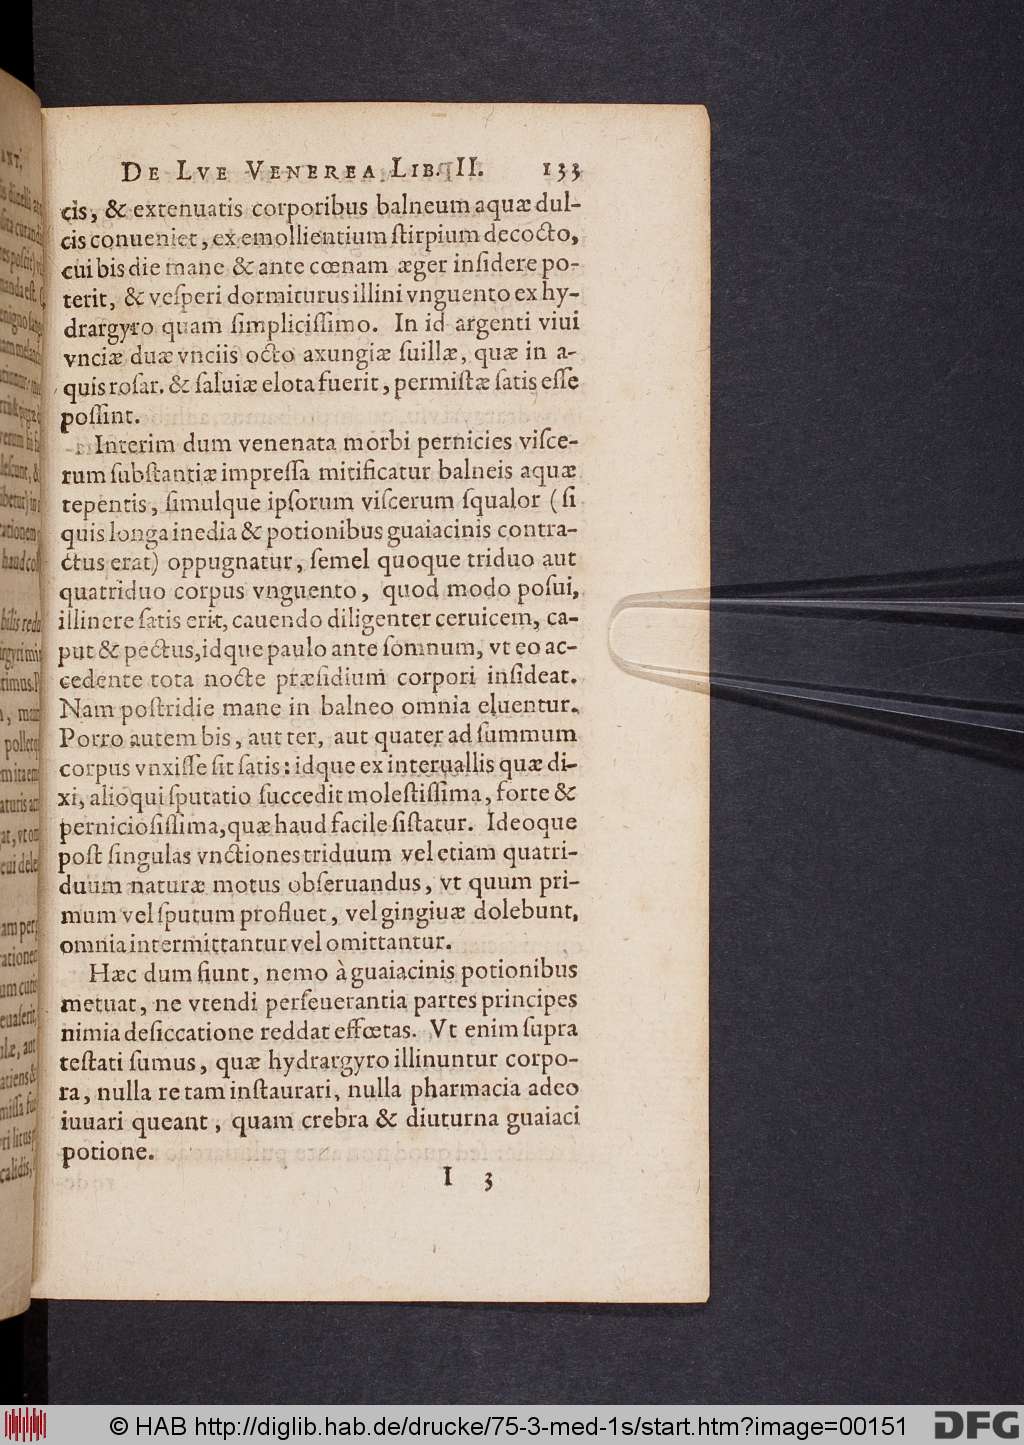 DE LVE VENEREA LIB. II. 133
cis, & extenuatis corporibus balneum aquæ dul-
cis conueniet, ex emollientium ſtirpium decocto,
cui bis die mane & ante cœnam æger inſidere po-
terit, & veſperi dormiturus illini vnguento ex hy-
drargyro quam ſimpliciſſimo. In id argenti viui
vnciæ duæ vnciis octo axungiæ ſuillæ, quæ in a-
quis roſar. & ſaluiæ elota fuerit, permiſtæ ſatis eſſe
poſſint.
Interim dum venenata morbi pernicies viſce-
rum ſubſtantiæ impreſſa mitificatur balneis aquæ
tepentis, ſimulque ipſorum viſcerum ſqualor (ſi
quis longa inedia & potionibus guaiacinis contra-
ctus erat) oppugnatur, ſemel quoque triduo aut
quatriduo corpus vnguento, quod modo poſui,
illinere ſatis erit, cauendo diligenter ceruicem, ca-
put & pectus, idque paulo ante ſomnum, vt eo ac-
cedente tota nocte præſidium corpori inſideat.
Nam poſtridie mane in balneo omnia eluentur.
Porro autem bis, aut ter, aut quater ad ſummum
corpus vnxiſſe ſit ſatis: idque ex interuallis quæ di-
xi, alioqui ſputatio ſuccedit moleſtiſſima, forte &
pernicioſiſſima, quæ haud facile ſiſtatur. Ideoque
poſt ſingulas vnctiones triduum vel etiam quatri-
duum naturæ motus obſeruandus, vt quum pri-
mum vel ſputum profluet, vel gingiuæ dolebunt,
omnia intermittantur vel omittantur.
Hæc dum fiunt, nemo à guaiacinis potionibus
metuat, ne vtendi perſeuerantia partes principes
nimia deſiccatione reddat effœtas. Vt enim ſupra
teſtati ſumus, quæ hydrargyro illinuntur corpo-
ra, nulla re tam inſtaurari, nulla pharmacia adeo
iuuari queant, quam crebra & diuturna guaiaci
potione.
I 3
© HAB http://diglib.hab.de/drucke/75-3-med-1s/start.htm?image=00151
DFG